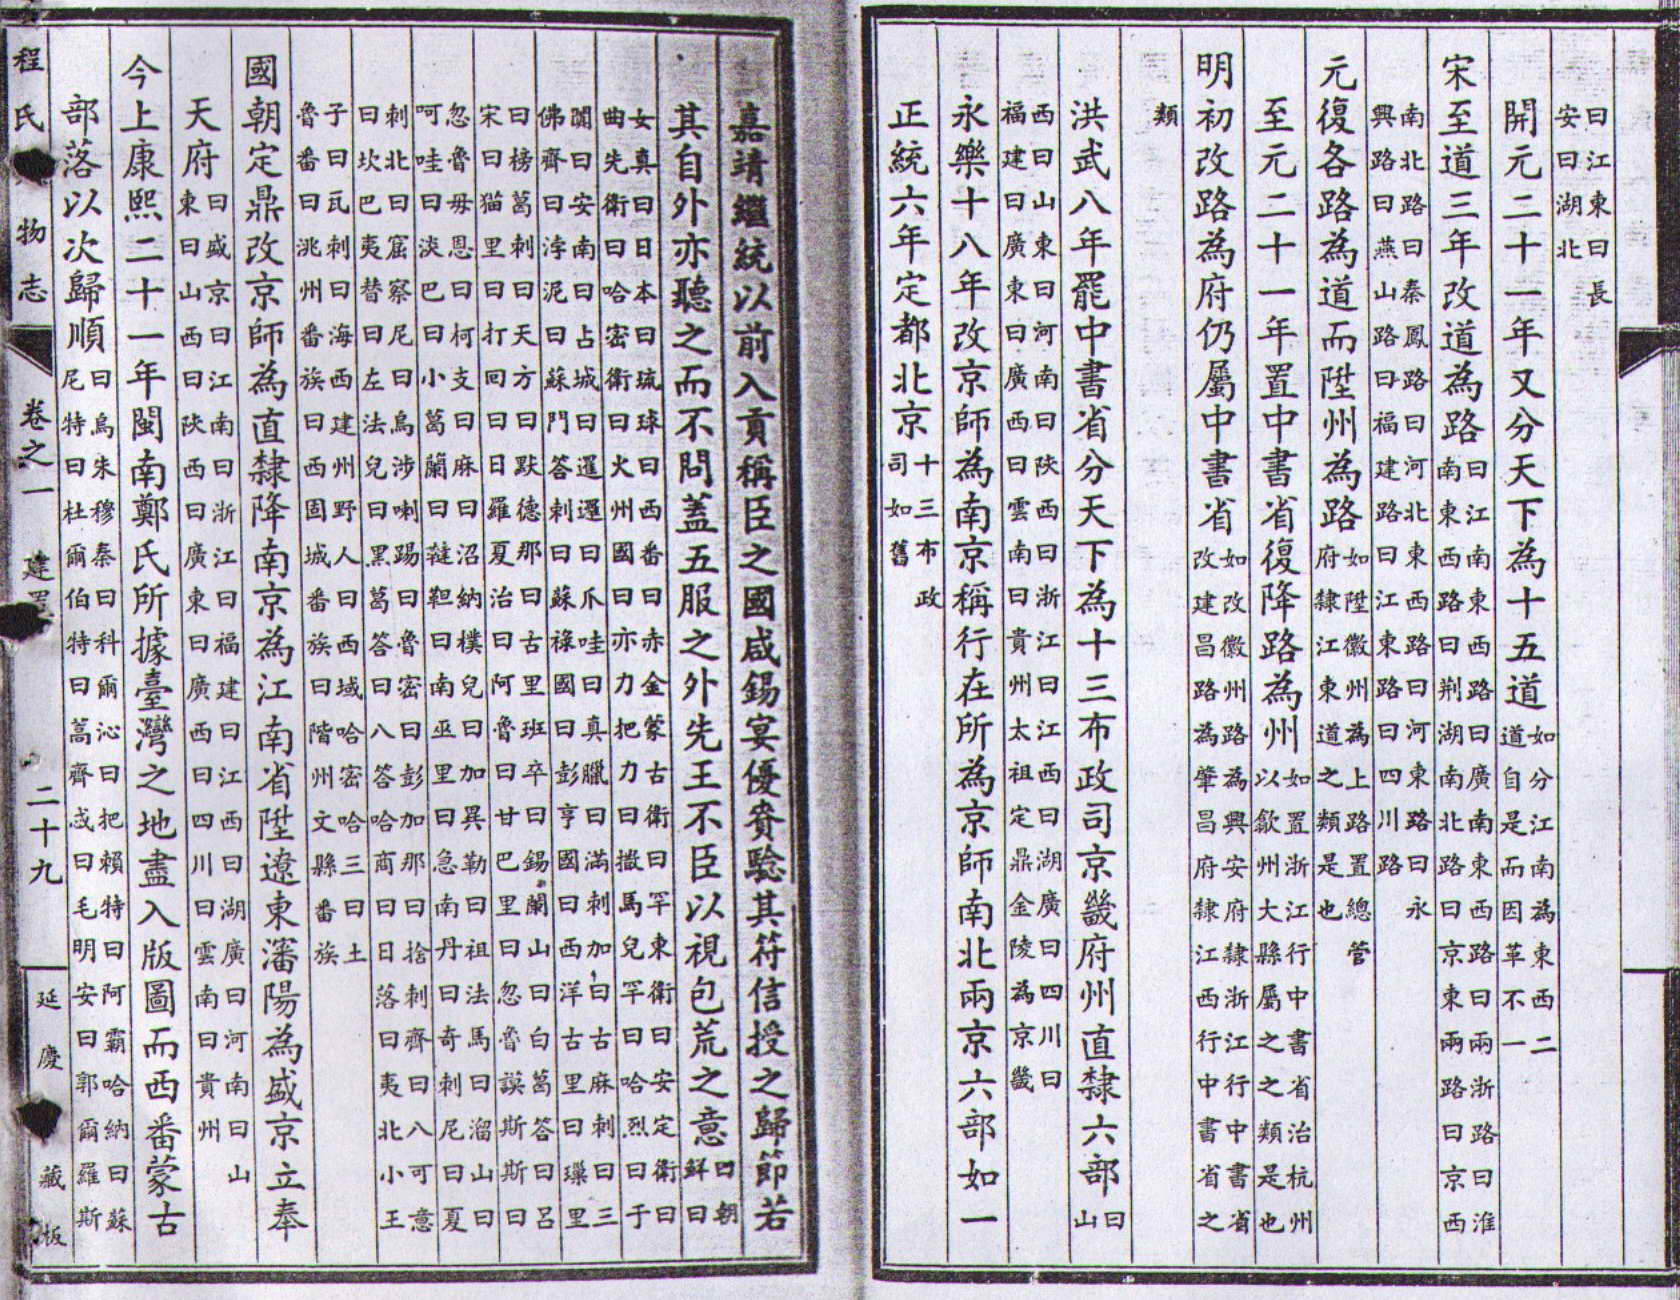 曰江東曰長
安曰湖北
開元二十一年又分天下為十五道如分江南為東西二
道自是而因革不一
宋至道三年改道為路曰江南東西路曰廣南東西路曰兩浙路曰淮
南東西路曰荊湖南北路曰京東兩路曰京西
南北路曰秦鳳路曰河北東西路曰河東路曰永
興路曰燕山路曰福建路曰江東路曰四川路
元復各路為道而陞州為路如陞徽州為上路置總管
府隸江東道之類是也
至元二十一年置中書省復降路為州如置浙江行中書省治杭州
以歙州大縣屬之之類是也
明初改路為府仍屬中書省如改徽州路為興安府隸浙江行中書省
改建昌路為肇昌府隸江西行中書省之
類
洪武八年罷中書省分天下為十三布政司京畿府州直隸六部曰
山
西曰山東曰河南曰陝西曰浙江曰江西曰湖廣曰四川曰
福建曰廣東曰廣西曰雲南曰貴州太祖定鼎金陵為京畿
永樂十八年改京師為南京稱行在所為京師南北兩京六部如一
正統六年定都北京十三布政
司如舊
嘉靖繼統以前入貢稱臣之國咸錫宴優賚驗其符信授之歸節若
其自外亦聽之而不問蓋五服之外先王不臣以視包荒之意曰朝
鮮曰
女真曰日本曰琉球曰西番曰赤金蒙古衛曰罕東衛曰安定衛曰
曲先衛曰哈密衛曰火州國曰亦力把力曰撒馬兒罕曰哈烈曰于
闐曰安南曰占城曰暹邏曰爪哇曰真臘曰滿刺加曰古麻刺曰三
佛齊曰浡泥曰蘇門答刺曰蘇祿國曰彭亨國曰西洋古里曰璅里
曰榜葛刺曰天方曰默德那曰古里班卒曰錫蘭山曰白葛答曰呂
宋曰猫里曰打囘曰日羅夏治曰阿魯曰甘巴里曰忽魯謨斯曰
忽魯毋恩曰柯支曰麻曰沼納樸兒曰加異勒曰祖法馬曰溜山曰
呵哇曰淡巴曰小葛蘭曰韃靼曰南巫里曰急南丹曰奇刺尼曰夏
刺北曰窟察尼曰烏涉喇踢曰魯密曰彭加那曰捨刺齊曰八可意
曰坎巴夷替曰左法兒曰黑葛答曰八答哈商曰日落曰夷北小王
子曰瓦刺曰海西建州野人曰西域哈密哈三曰土
魯番曰洮州番族曰西固城番族曰階州文縣番族
國朝定鼎改京師為直隸降南京為江南省陞遼東瀋陽為盛京立奉
天府曰盛京曰江南曰浙江曰福建曰江西曰湖廣曰河南曰山
東曰山西曰陝西曰廣東曰廣西曰四川曰雲南曰貴州
今上康熙二十一年閩南鄭氏所據臺灣之地盡入版圖而西番蒙古
部落以次歸順曰烏朱穆秦曰科爾沁曰把賴特曰阿霸哈納曰蘇
尼特曰杜爾伯特曰蒿齊忒曰毛明安曰郭爾羅斯
程氏 物志 卷之一 建置 二十九 延慶 藏板